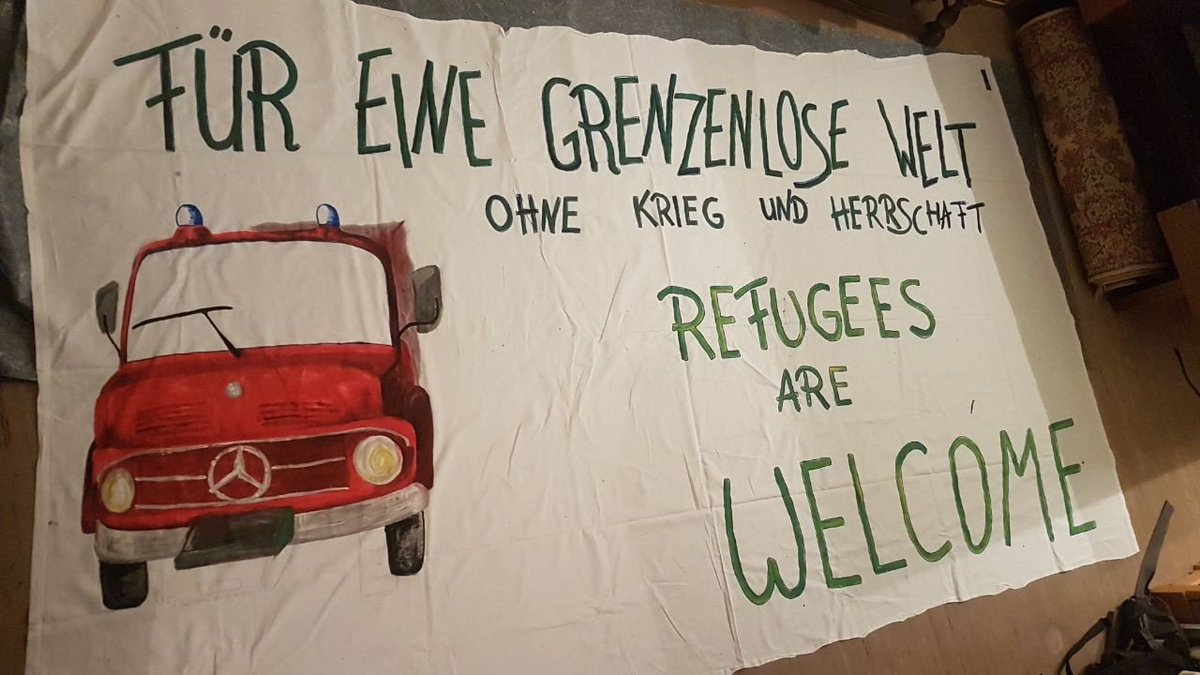 FÜR EINE GRENZENLOSE WELT
OHNE KRIEG UND HERRSCHAFT
REFUGEES
ARE
WELCOME